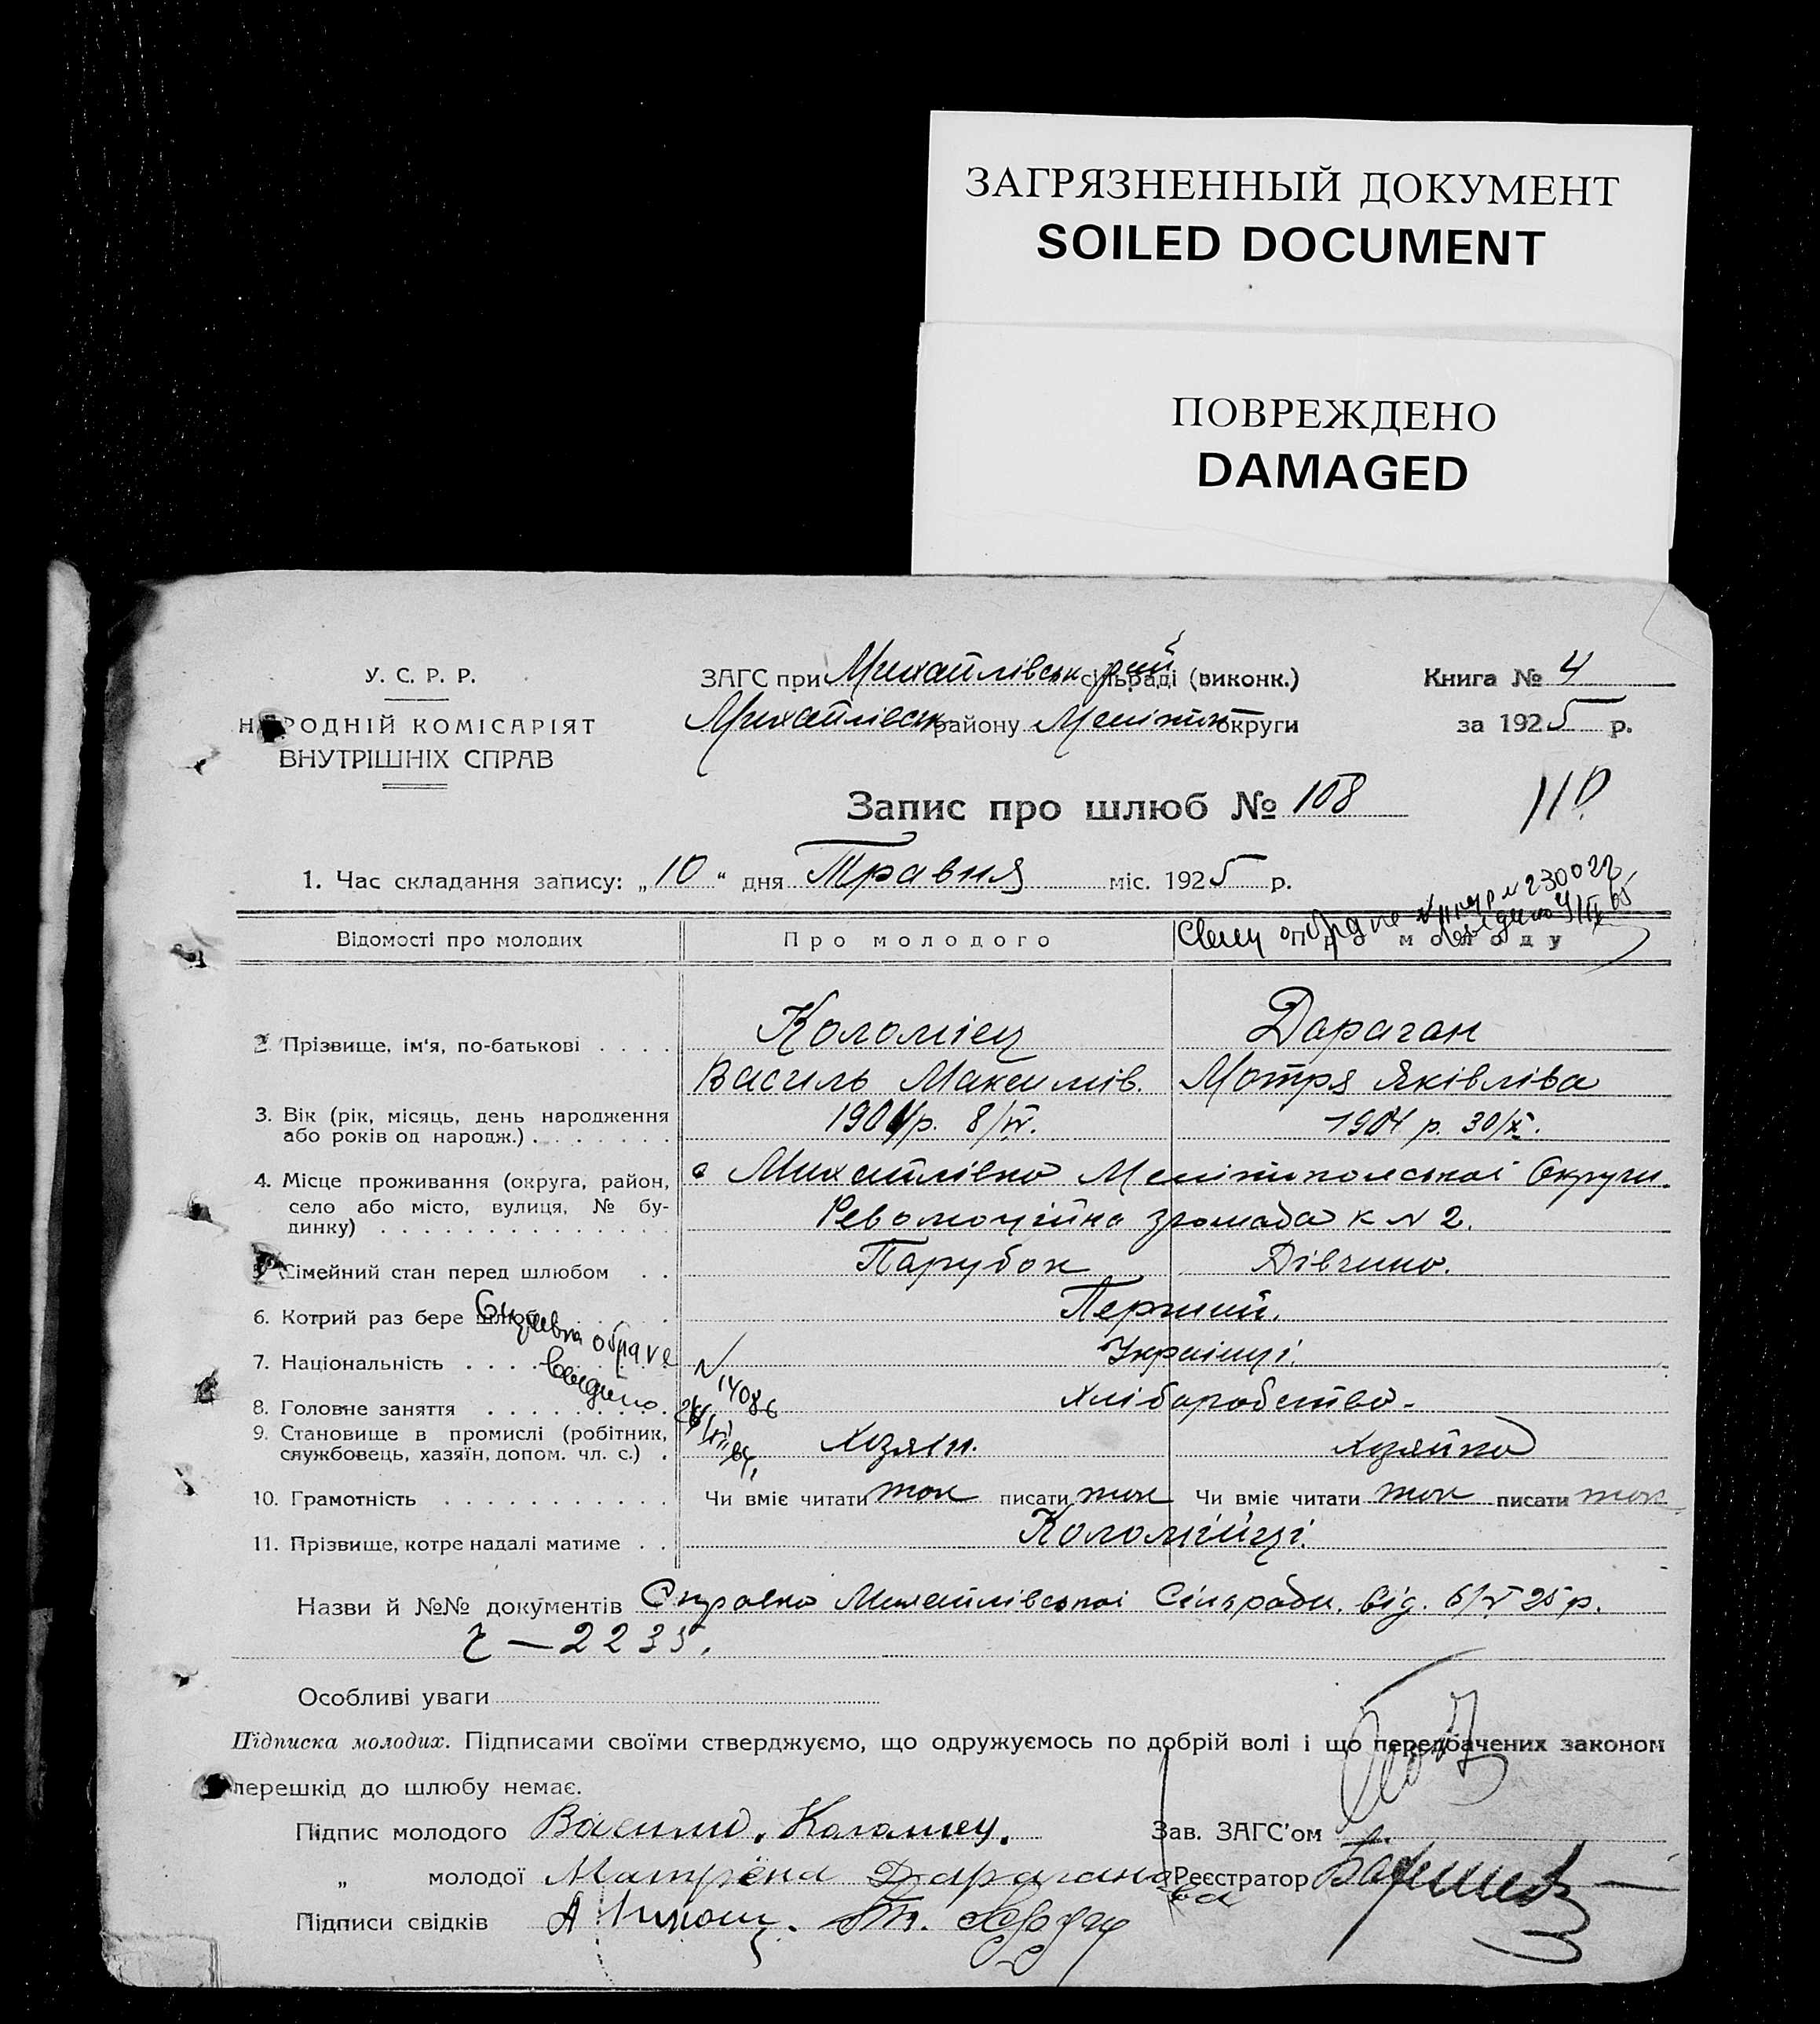 ЗАГРЯЗНЕННЫЙ ДОКУМЕНТ
SOILED DOCUMENT
ПОВРЕЖДЕНО
DAMAGED
У. С. Р. Р.
НАРОДНІЙ КОМІСАРІЯТ
ВНУТРІШНІХ СПРАВ
ЗАГС при Михайлівськ сільраді (виконк.)
Михайлівськ району Меліtoп округи
Книга № 4
за 1925 р.
Запис про шлюб № 108
110
1. Час складання запису: „10“ дня Травня міс. 1925 р.
Відомості про молодих Про молодого Про молоду
2. Прізвище, ім'я, по-батькові Коломіец Дараган
Василь Максимів. Мотря Яківліва
3. Вік (рік, місяць, день народження або років од народж.) 1904 р. 8/IV. 1904 р. 30/X.
4. Місце проживання (округа, район, село або місто, вулиця, № будинку) с Михайлівка Мелітопольської Округи.
Революційна громада к № 2.
5. Сімейний стан перед шлюбом Парубок Дівчина.
6. Котрий раз бере шлюб Перший.
7. Національність Українці.
8. Головне заняття Хліборобство.
9. Становище в промислі (робітник, службовець, хазяїн, допом. чл. с.) Хозяін. Хозяйка
10. Грамотність Чи вміє читати так писати так Чи вміє читати так писати так
11. Прізвище, котре надалі матиме Коломійці.
Назви й №№ документів Справка Михайлівської Сільради. від. 6/V 25 р.
2235.
Особливі уваги
Підписка молодих. Підписами своїми стверджуємо, що одружуємось по добрій волі і що передбачених законом
перешкід до шлюбу немає.
Підпис молодого Коломіец.
Зав. ЗАГС'ом
„ молодої Матрёна Дараганова
Реєстратор
Підписи свідків